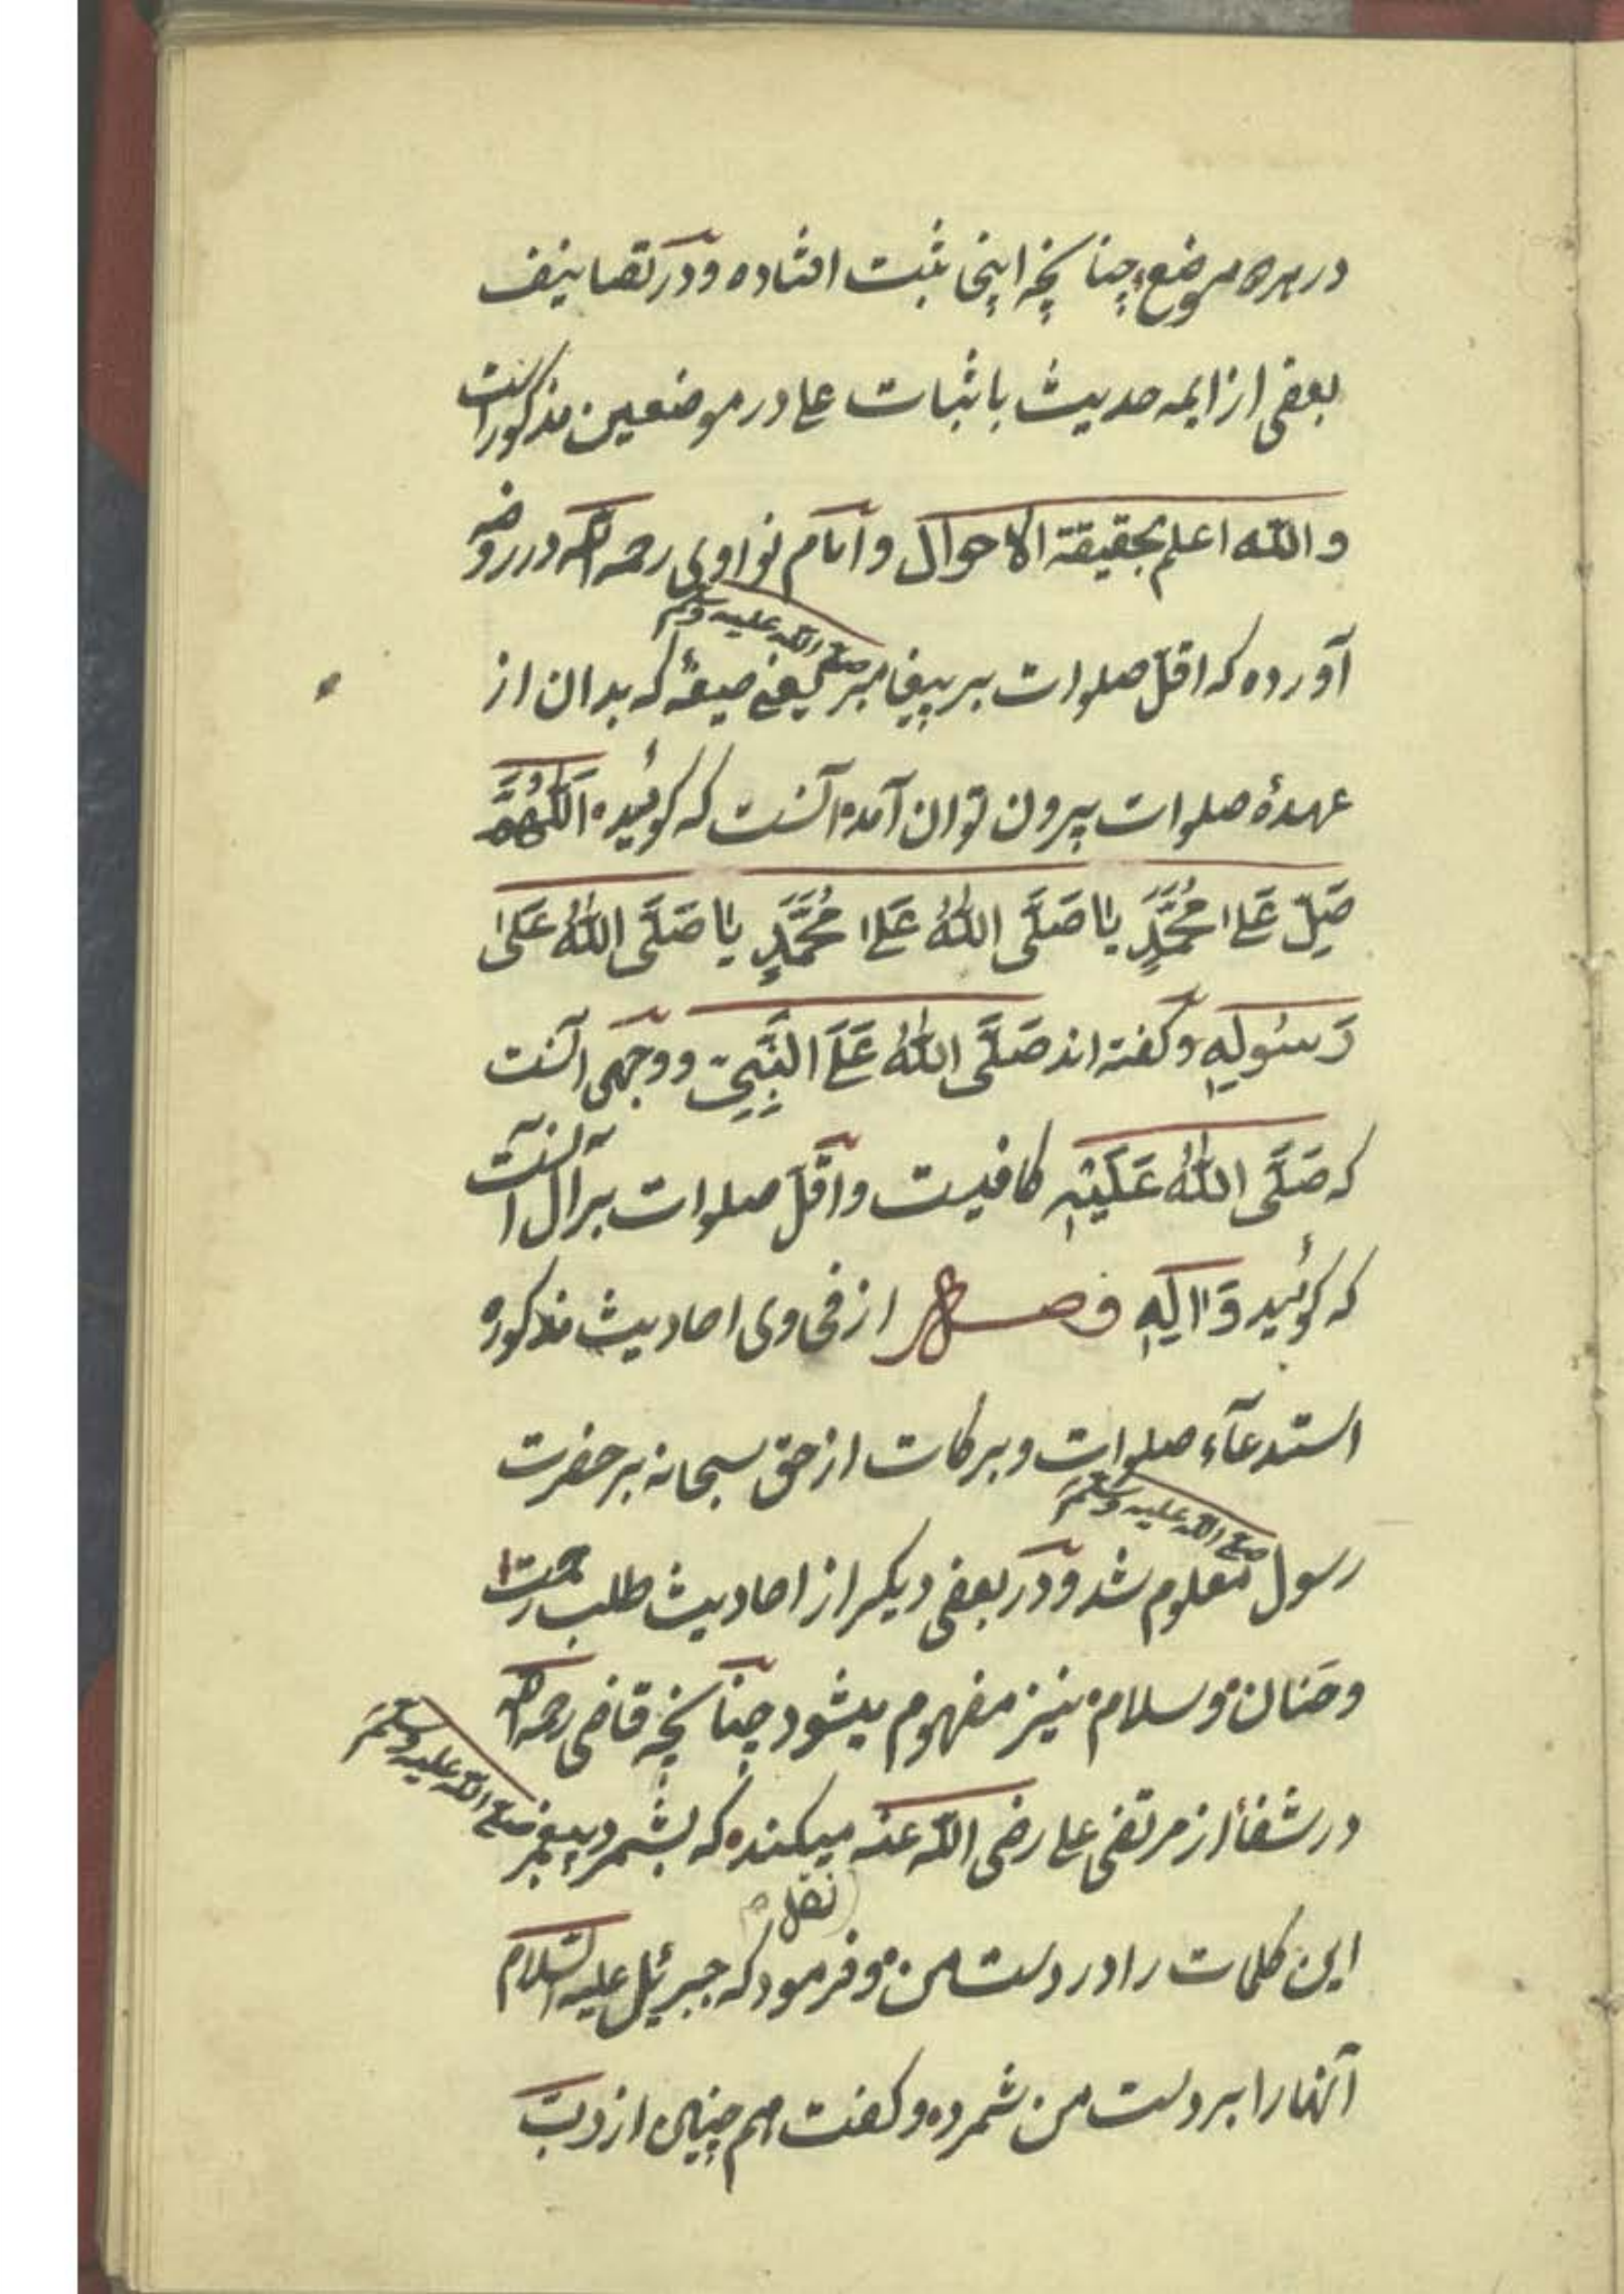 در هر موضع چنانچه اینجا ثبت افتاده و در تصانیف
بعضی از ایمه حدیث باثبات علی در موضعین مذکور است
والله اعلم بحقیقة الاحوال و امام نواوی رحمه الله در روضه
آورده که اقلّ صلوات بر پیغامبر صلی الله علیه وسلم یعنی صیغهٔ که بدان از
عهدهٔ صلوات بیرون توان آمد آنست که کوئید اَللّٰهُمَّ
صَلِّ عَلٰی مُحَمَّدٍ یا صَلَّی اللّٰهُ عَلٰی مُحَمَّدٍ یا صَلَّی اللّٰهُ عَلٰی
رَسُولِهِ و کفته اند صَلَّی اللّٰهُ عَلَی النَّبِیِّ و وجهی آنست
که صَلَّی اللّٰهُ عَلَیْهِ کافیست و اقلّ صلوات بر آل آنست
که کوئید وَاٰلِهِ فصل از فحاوی احادیث مذکوره
استدعآء صلوات و برکات از حق سبحانه بر حضرت
رسول صلی الله علیه وسلم معلوم شد و در بعضی دیکر از احادیث طلب رحمت
وحنان وسلام نیز مفهوم میشود چنانچه قاضی رحمه الله
در شفا از مرتضی علی رضی الله عنه میکند که بشمرد پیغمبر صلی الله علیه وسلم
نقل
این کلمات را در دست من و فرمود که جبرئیل علیه السلام
آنها را بر دست من شمرده و کفت هم چنین از ربّ